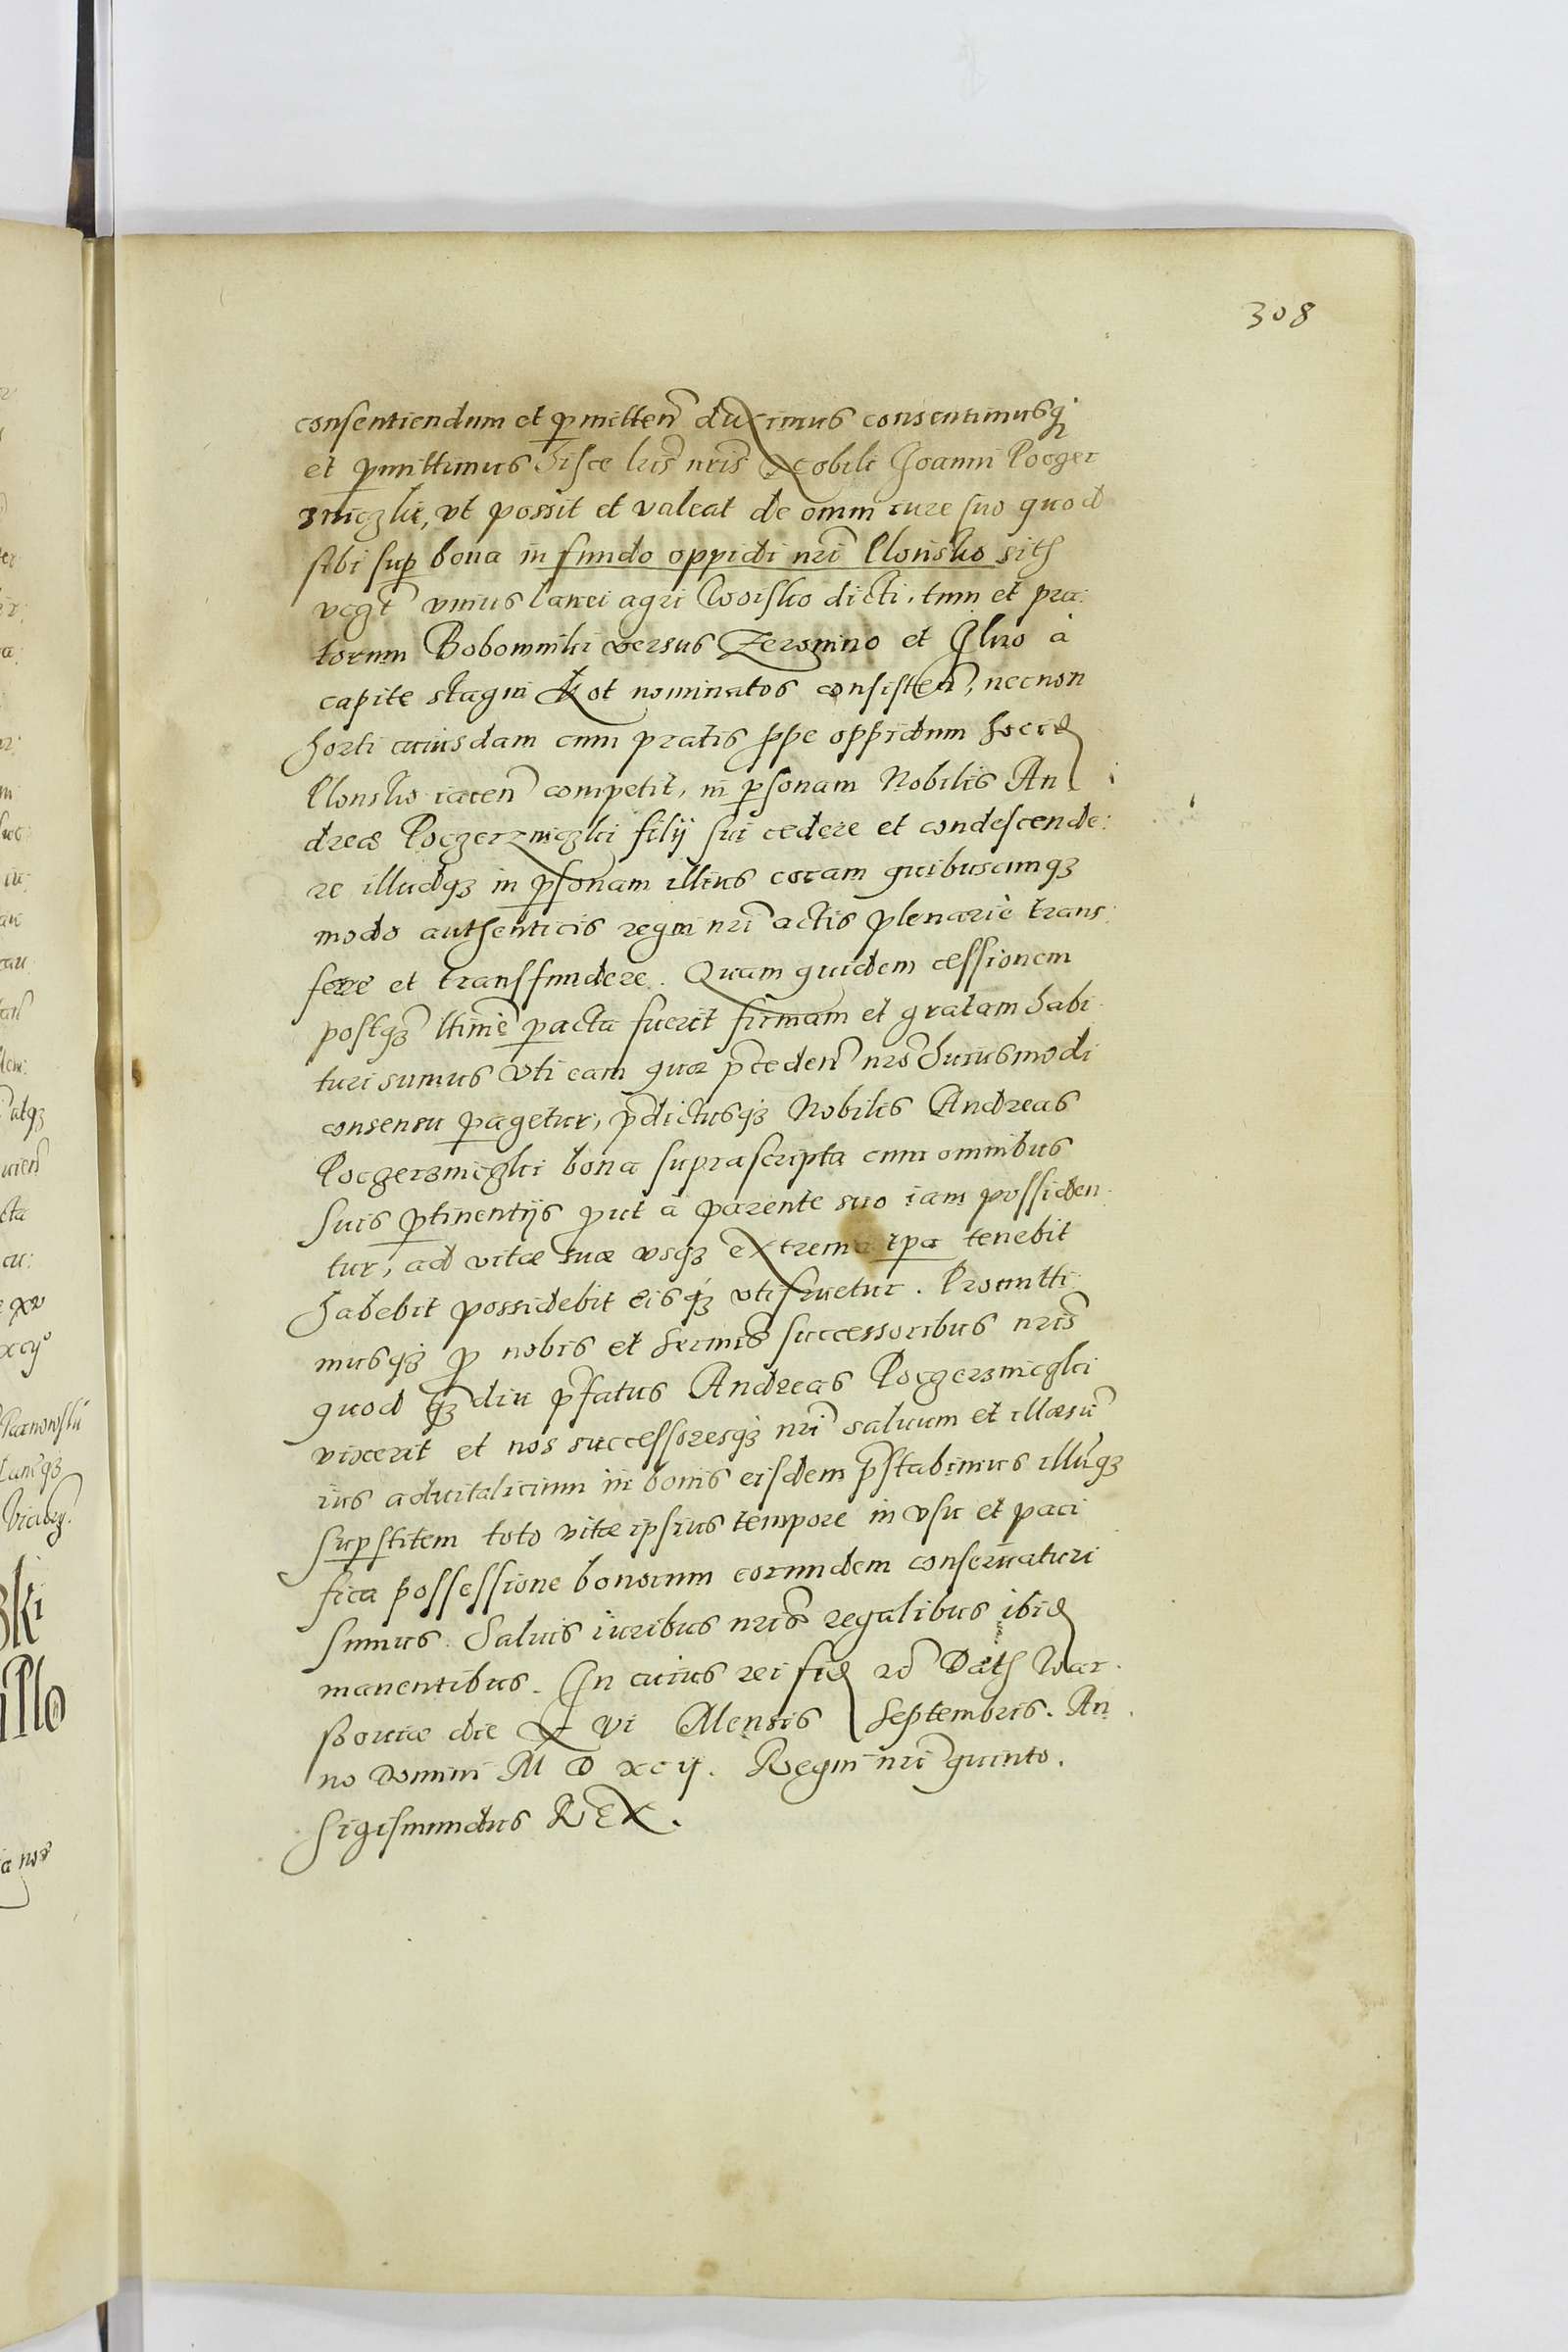 308
consentiendum et p̱mitten̄ duximus consentimusq́
et p̱mittimus hisce lr̃is nr̃is Nobili Joanni Poczer
zniczki, vt possit et valeat de omni iure suo quod
sibi sup̱ bona in fundo oppidi nr̃i Plonsko sith
vnius lanei agri Woisko dicti, tum et pra:
torum Bobowniki versus Zeromino et Ilno à
capite stagni Kot nominatos consisten̄, necnon
horti cuiusdam cum pratis ꝓpe oppidum hocid
Plonsko iacen̄ competit, in p̱sonam Nobilis An
dreæ Poczerzniczki filij sui cedere et condescende:
re illudqꝫ in p̱sonam illius coram quibuscunqꝫ
modo authenticis regni nr̃i actis plenariè trans:
ferre et transfundere. Quam quidem cessionem
postqꝫ ltimè p̱acta fuerit firmam et gratam habi
turi sumus vti eam quæ p̄ceden̄ nr̃o huiusmodi
consensu p̱agetur, p̄dictusqꝫ Nobilis Andreas
Poczerzniczki bona suprascripta cum omnibus
suis p̱tinentijs ꝓut à parente suo iam possiden
tur, ad vitæ suæ vsqꝫ extrema tp̱a tenebit
habebit possidebit eisqꝫ vtifruetur. Promitti
musqꝫ ꝓ nobis et sermis̄ successoribus nr̃is
quod qꝫ diu p̄fatus Andreas Poczerzniczki
vixerit et nos successoresqꝫ nr̃i saluum et illæsū
ius aduitalicium in bonis eisdem p̄stabimus illūqꝫ
sup̱stitem toto vitæ ipsius tempore in vsu et paci
fica possessione bonorum eorundem conseruaturi
sumus. Saluis iuribus nr̃is regalibus ibid
manentibus. In cuius rei fid r̃o Dath War
souiæ die XVI Mensis Septembris. An
no Domini M D xcij. Regni nr̃i quinto.
Sigismundus REX.